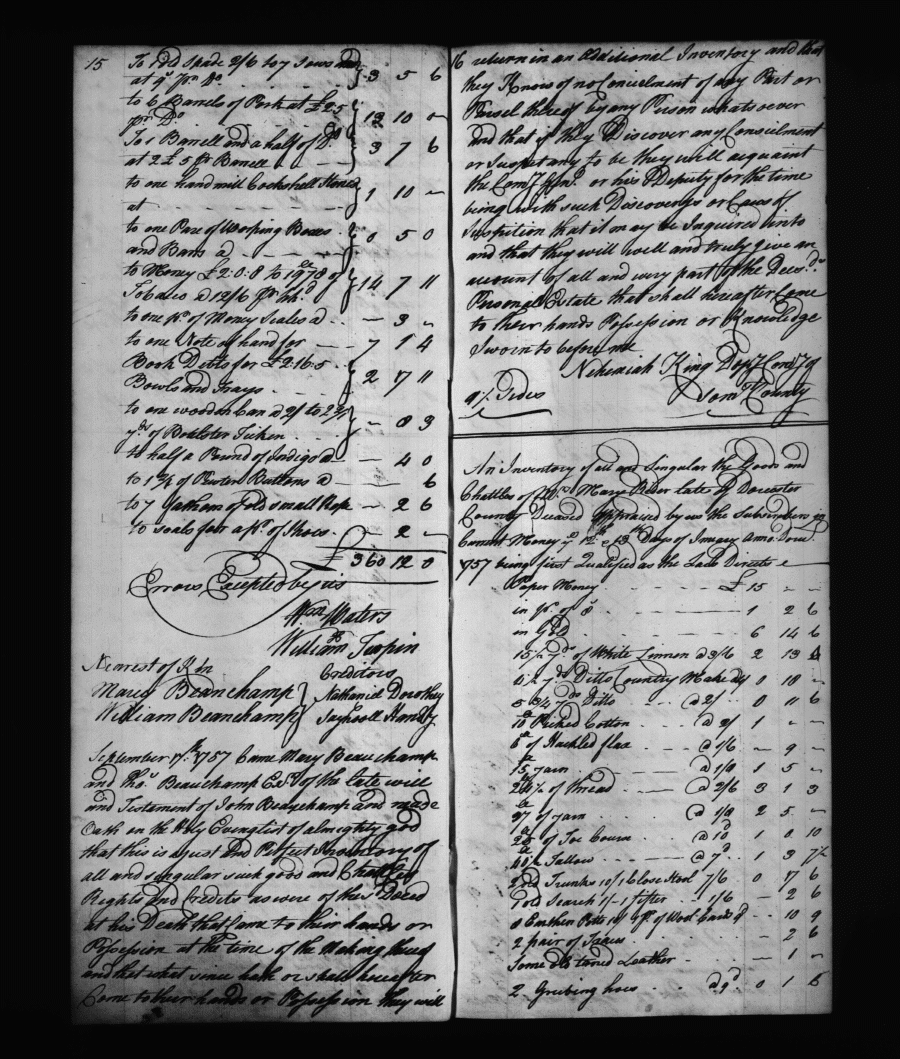 15
To 1 old Spade 2/6 to 7 Sows and
at 9d pr Do } 3 5 6
to 6 Barrels of Pork at £2.5
pr Do } 12 10 0
To 1 Barrell and a half of Do
at 2£5 pr Barrell } 3 7 6
to one hand mill Cockshell Stones
at } 1 10 -
to one Pare of Worping Boxes
and Bars a } 0 5 0
to Money £2:0:8 to 1978 of
Tobacco a 12/6 pr hd } 14 7 11
to one pr of Money Scales a - 3 -
to one Note of hand for - 7 1 4
Book Debts for £2.16.5
Bowls and Trays } 2 7 11
to one wooden Can a 2/ to 2¾
yds of Boulster Ticken } - 8 3
to half a Pound of Indigo a - 4 0
to 1¾ of Pewter Buttons a - 6
to 7 Fathom of old small Rope - 2 6
to soals for a pr of Shoes - 2 -
£ 360 12 0
Errors Excepted by us
Wm Waters
William Turpin
Nearest of Kin
Creditors
Mary Beauchamp
Nathaniel Dorothey
William Beauchamp
Handy
September 17th 1757 Came Mary Beauchamp
and Thos Beauchamp Exrs of the late will
and Testament of John Beauchamp and made
Oath on the Holy Evanglist of almighty god
that this is a just and Perfect Inventory of
all and singular such good and Chattles
Rights and Credits as were of the sd Deced
at his Death that Came to their hands or
Possession at the time of the Making thereof
and that what since hath or shall hereafter
Come to their hands or Possession they will
16 return in an additional Inventory and that
they Know of no Conciclment of any Part or
Parcel thereof by any Person whatsoever
and that if they Discover any Concilment
or Suspet any to be they will acquaint
the Comy Genl or his Deputy for the time
being with such Discoverys or Caus of
Suspition that it may be Inquired into
and that they will well and truly give an
account of all and every part of the Decsds
Personal Estate that shall hereafter Come
to their hands Possession or Knowledge
Sworn to before me
Nehemiah King Depy Comy of
Somt County
9½ Sides
An Inventory of all and Singular the Goods and
Chattles of Mrs Mary Rider late of Dorcester
County Deceased appraised by us the Subscribers in
Currant Money ye 12th & 13th Days of Anno Dom.
1757 being first Qualified as the Law Directs
Paper Money £ 15 - -
in ps. of 8 - 1 2 6
in Gold 6 14 6
15½ yds of White Linnen @ 3/6 2 13
6½ yds Ditto Country Make 0 10 -
5¾ yds Ditto @ 2/ 0 11 6
10 Picked Cotton @ 2/ 1 - -
6 of Hackled flax @ 1/6 - 9 -
15 yarn @ 1/8 1 5 -
24½ of thread @ 2/6 3 1 3
27 of yarn @ 1/8 2 5 -
25 of Toe Course @ 10d 1 0 10
40½ Tallow @ 7d 1 3 7½
2 old Trunks 10/ 1 Close Stool 7/6 0 17 6
1 old Search 1/- 1 sifter 1/6 - 2 6
Earthen Potts pr of Wool Cards - 10 9
2 pair of - 2 6
Some old taned Leather - 1 -
2 Grubing hoes @ 9d 0 1 6